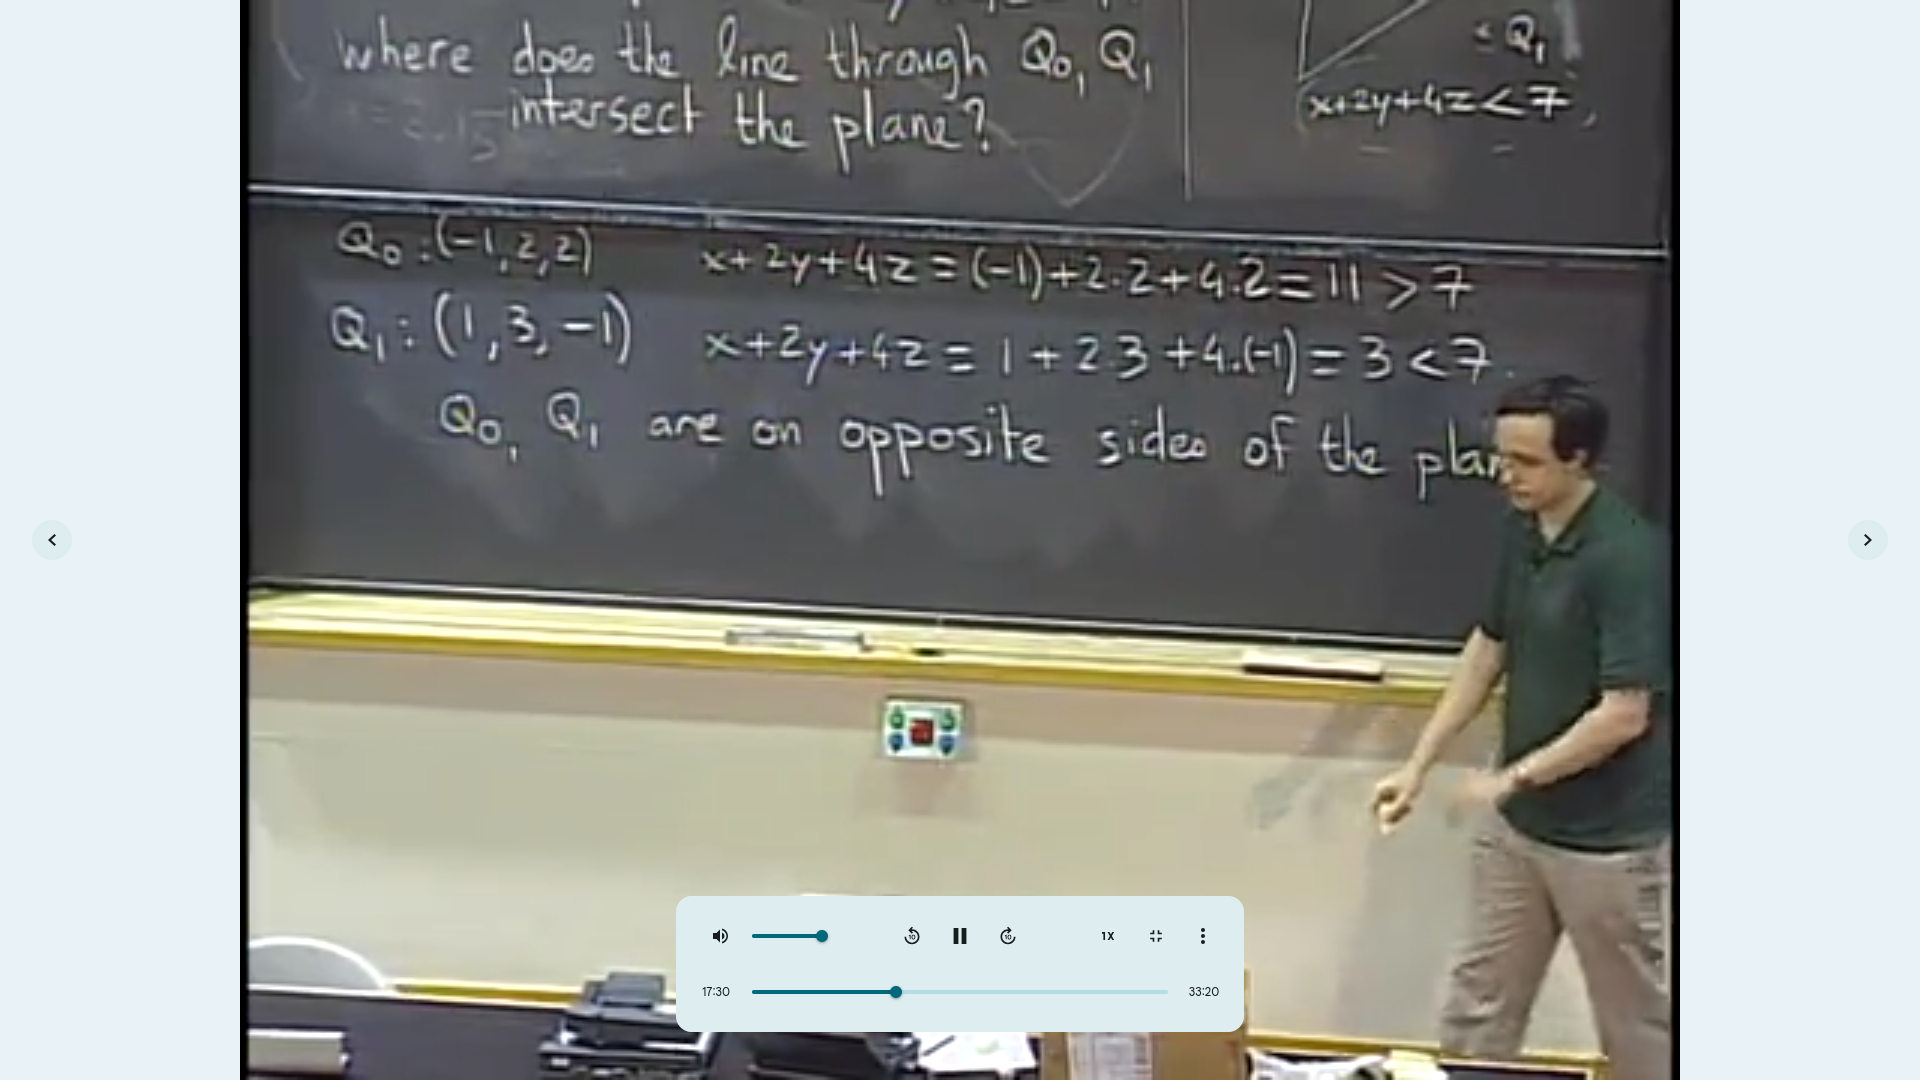 where does the line through Q₀, Q₁
intersect the plane?
= Q₁
x+2y+4z<7
Q₀ : (-1,2,2) x+2y+4z = (-1)+2·2+4·2=11 >7
Q₁ : (1,3,-1) x+2y+4z = 1+2·3+4·(-1) = 3 <7.
Q₀, Q₁ are on opposite sides of the
10 10 1X
17:30 33:20